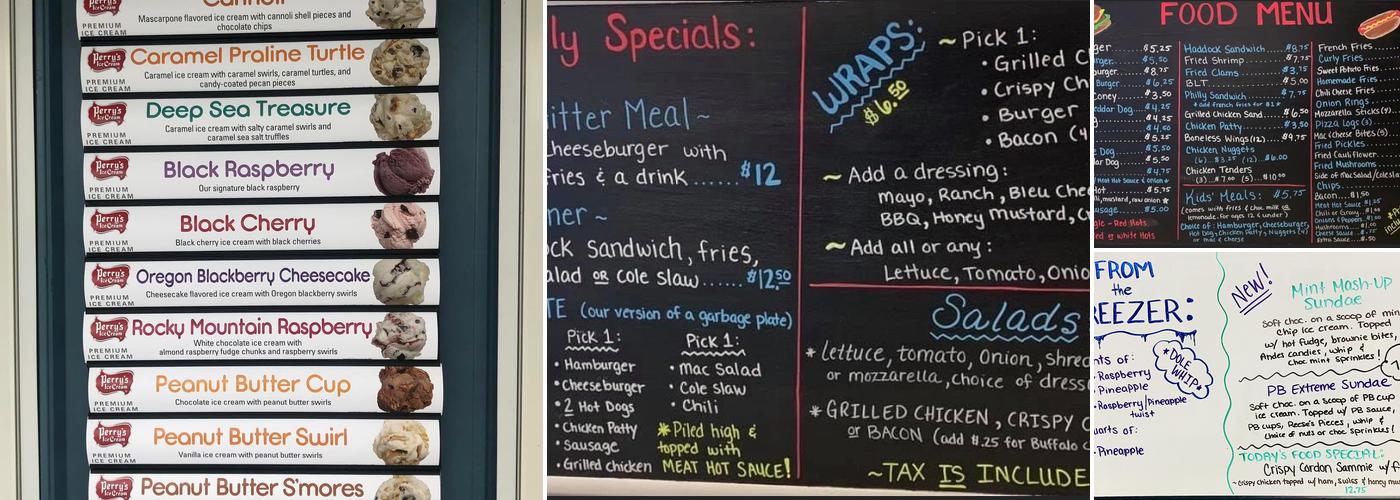 Perry's Ice Cream
PREMIUM ICE CREAM
Cannoli
Mascarpone flavored ice cream with cannoli shell pieces and
chocolate chips
Perry's Ice Cream
PREMIUM ICE CREAM
Caramel Praline Turtle
Caramel ice cream with caramel swirls, caramel turtles, and
candy-coated pecan pieces
Perry's Ice Cream
PREMIUM ICE CREAM
Deep Sea Treasure
Caramel ice cream with salty caramel swirls and
caramel sea salt truffles
Perry's Ice Cream
PREMIUM ICE CREAM
Black Raspberry
Our signature black raspberry
Perry's Ice Cream
PREMIUM ICE CREAM
Black Cherry
Black cherry ice cream with black cherries
Perry's Ice Cream
PREMIUM ICE CREAM
Oregon Blackberry Cheesecake
Cheesecake flavored ice cream with Oregon blackberry swirls
Perry's Ice Cream
PREMIUM ICE CREAM
Rocky Mountain Raspberry
White chocolate ice cream with
almond raspberry fudge chunks and raspberry swirls
Perry's Ice Cream
PREMIUM ICE CREAM
Peanut Butter Cup
Chocolate ice cream with peanut butter swirls
Perry's Ice Cream
PREMIUM ICE CREAM
Peanut Butter Swirl
Vanilla ice cream with peanut butter swirls
Perry's Ice Cream
Peanut Butter S'mores
ly Specials:
itter Meal ~
heeseburger with
fries & a drink......$12
ner ~
ck Sandwich, fries,
alad or cole slaw......$12.50
TE (our version of a garbage plate)
Pick 1:
• Hamburger
• Cheeseburger
• 2 Hot Dogs
• Chicken Patty
• Sausage
• Grilled chicken
Pick 1:
• mac Salad
• Cole slaw
• Chili
* Piled high &
topped with
MEAT HOT SAUCE!
WRAPS:
$6.50
~ Pick 1:
• Grilled C
• Crispy Ch
• Burger
• Bacon (4
~ Add a dressing:
mayo, Ranch, Bleu Chee
BBQ, Honey mustard, C
~ Add all or any:
Lettuce, Tomato, Onio
Salads
* lettuce, tomato, Onion, shred
or mozzarella, choice of dress
* GRILLED CHICKEN, CRISPY C
or BACON (add $1.25 for Buffalo C
~TAX IS INCLUDE
FOOD MENU
ger......$5.25
urger....$5.50
burger....$8.75
Burger....$6.25
Coney....$3.50
eddar Dog
$4.25
$4.50
$5.25
Dog....$5.50
dar Dog....$5.50
Hot....$5.75
usage....$5.00
gle - Red Hots
ed or White Hots
Haddock Sandwich....$8.75
Fried Shrimp....$7.75
Fried Clams....$3.75
BLT....$5.00
Philly Sandwich....$7.75
* add french fries for $1 *
Grilled Chicken Sand....$6.50
Chicken Patty....$3.50
Boneless Wings (12)....$9.75
Chicken Nuggets
(6)...$3.25 (12)...$6.00
Chicken Tenders
(3)...$7.00 (5)...$10.00
Kids' Meals: $5.75
(comes with fries & choc. milk or
lemonade. for ages 12 & under)
Choice of: Hamburger, Cheeseburger,
Hot Dog, Chicken Patty, Nuggets (4)
or mac & cheese
French Fries
Curly Fries
Sweet Potato Fries
Homemade Fries
Chili Cheese Fries
Onion Rings
Mozzarella Sticks
Pizza Logs (3)
Mac & Cheese Bites (5)
Fried Pickles
Fried Cauliflower
Fried Mushrooms
Side of mac Salad/coleslaw
Chips
Bacon...$1.50
Meat Hot Sauce
Chili or Gravy
Onions & Peppers
Mushrooms
Cheese Sauce
Extra Sauce
FROM
the
REEZER:
nts of:
Raspberry
Pineapple
Raspberry/Pineapple
twist
uarts of:
Pineapple
*DOLE
WHIP*
NEW!
Mint Mash-Up
Sundae
Soft choc. on a scoop of min
chip ice cream. Topped
w/ hot fudge, brownie bites,
Andes candies, whip &
choc mint sprinkles!
PB Extreme Sundae
Soft choc. on a scoop of PB cup
ice cream. Topped w/ PB sauce,
PB cups, Reese's Pieces, whip &
choice of nuts or choc sprinkles!
TODAY'S FOOD SPECIAL:
Crispy Cordon Sammie w/ f
~crispy chicken topped w/ ham, swiss & honey mus
12.75